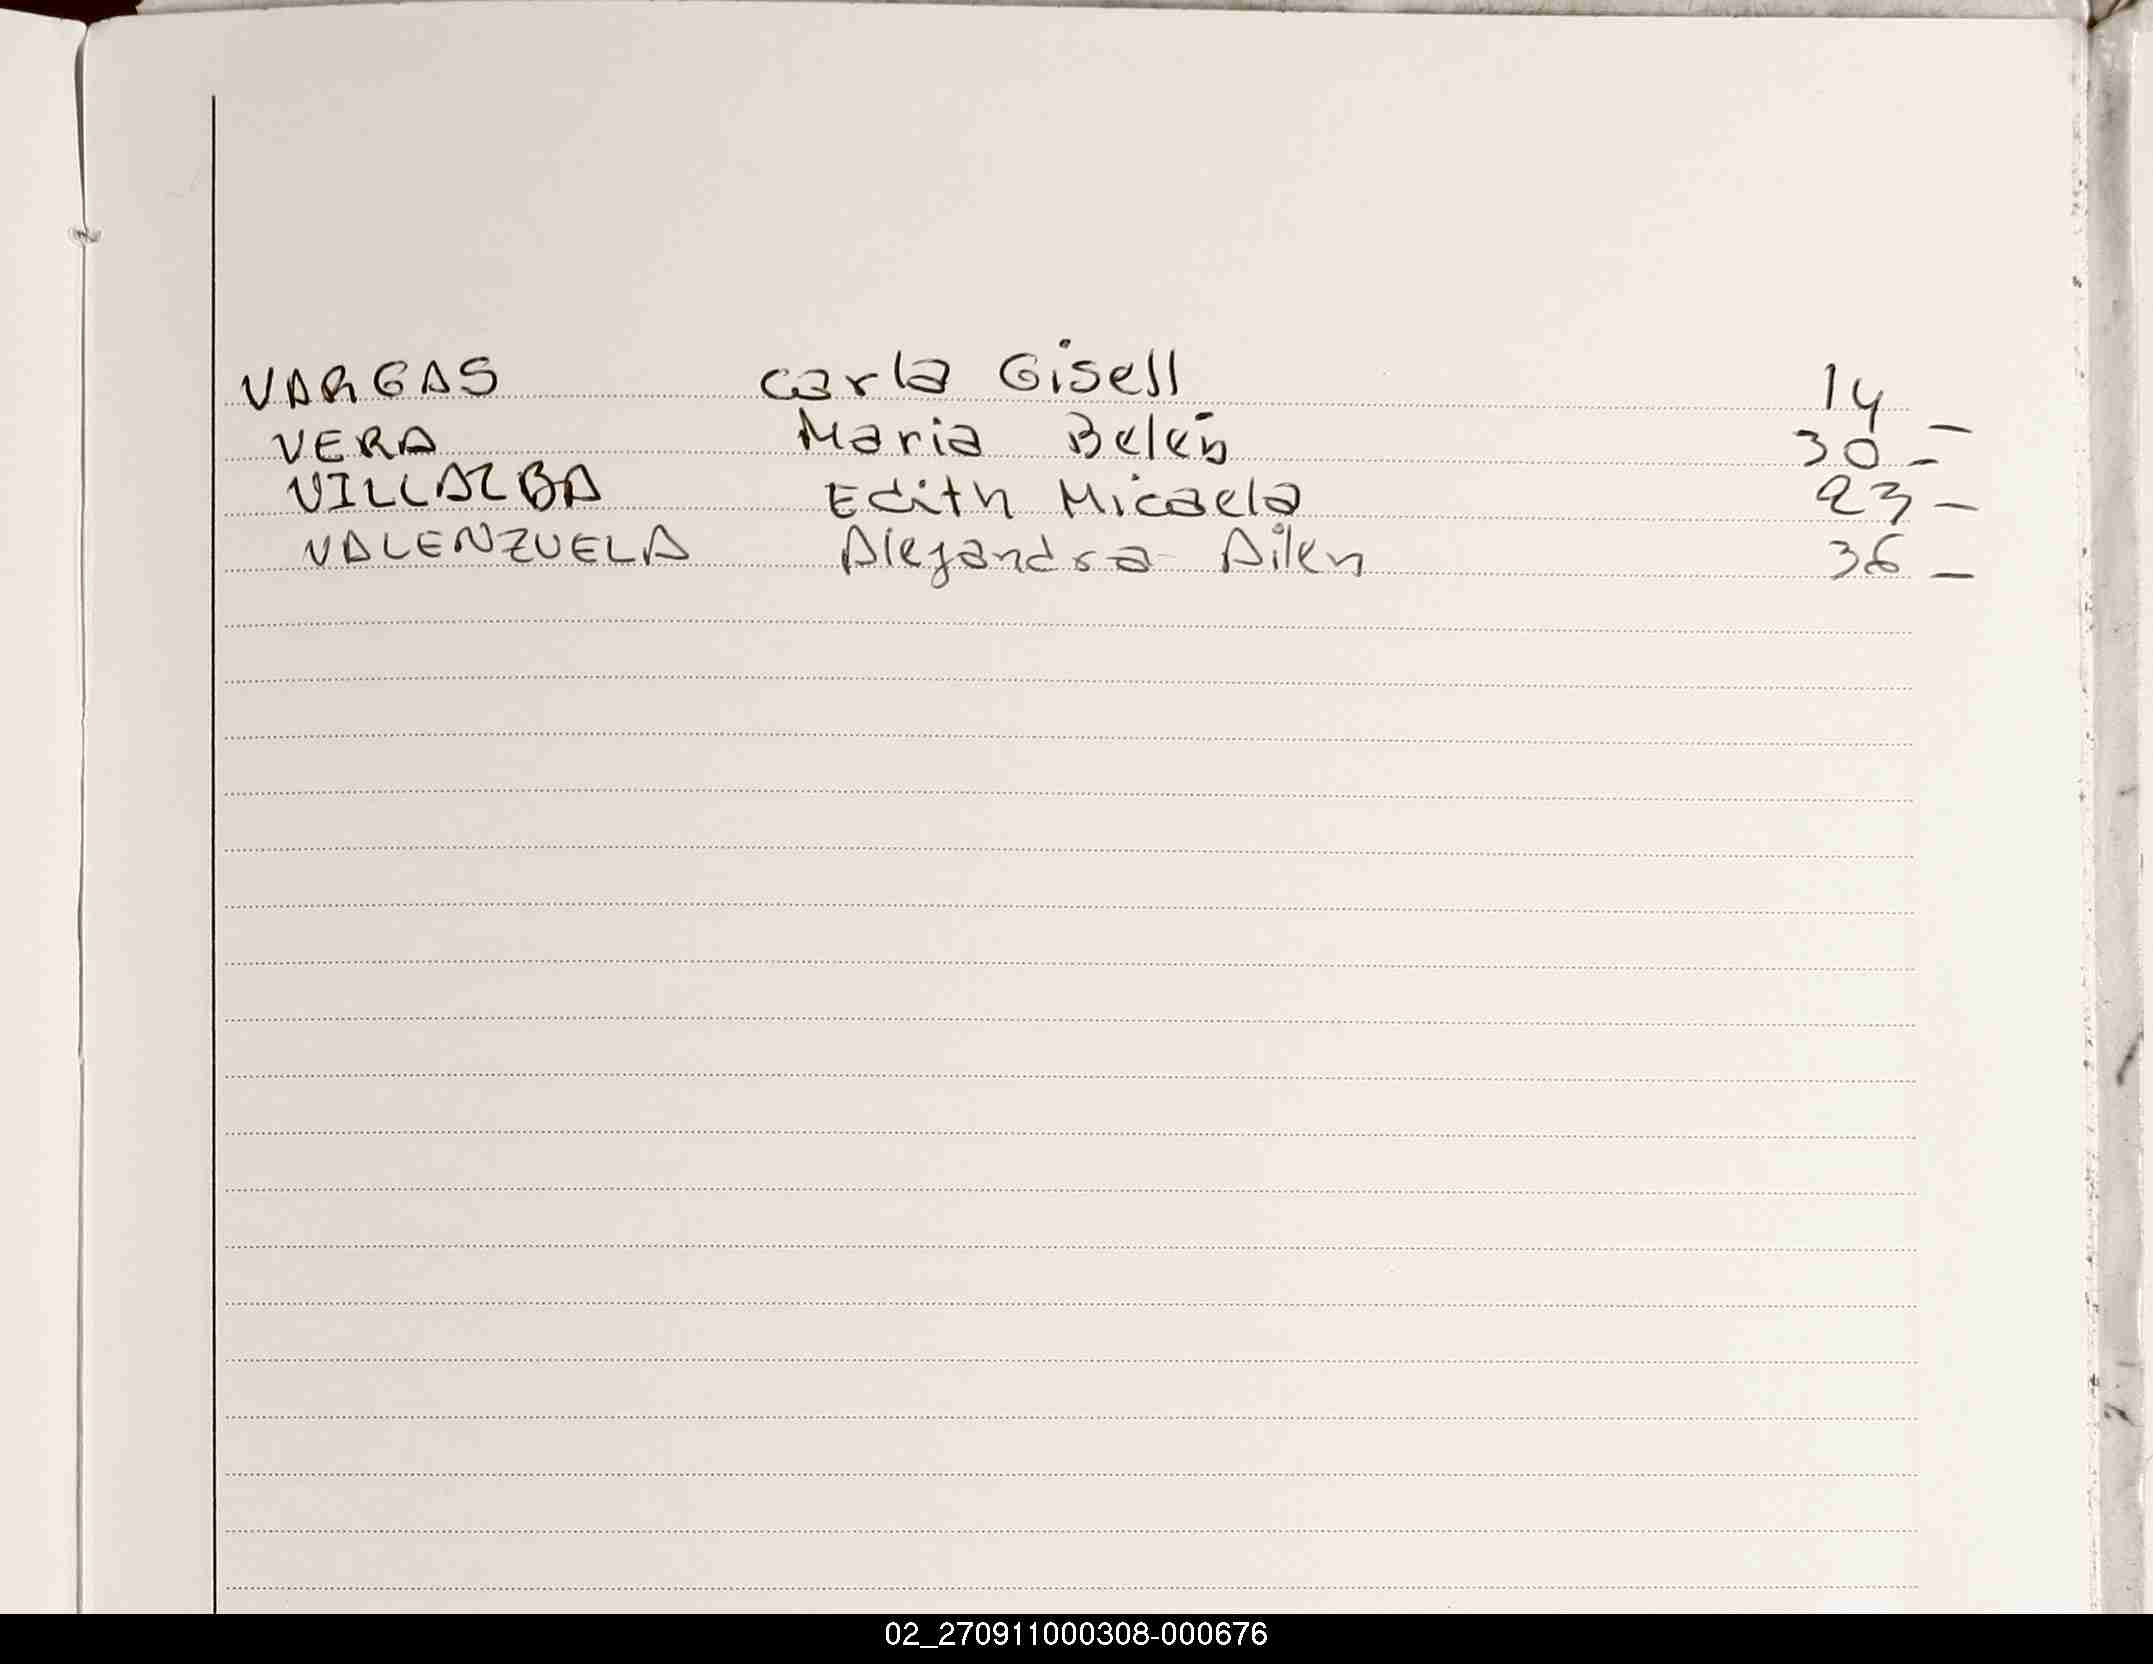 VARGAS Carla Gisell 14 –
VERA Maria Belén 30 –
VILLALBA Edith Micaela 23 –
VALENZUELA Alejandra Ailen 36 –
02_270911000308-000676